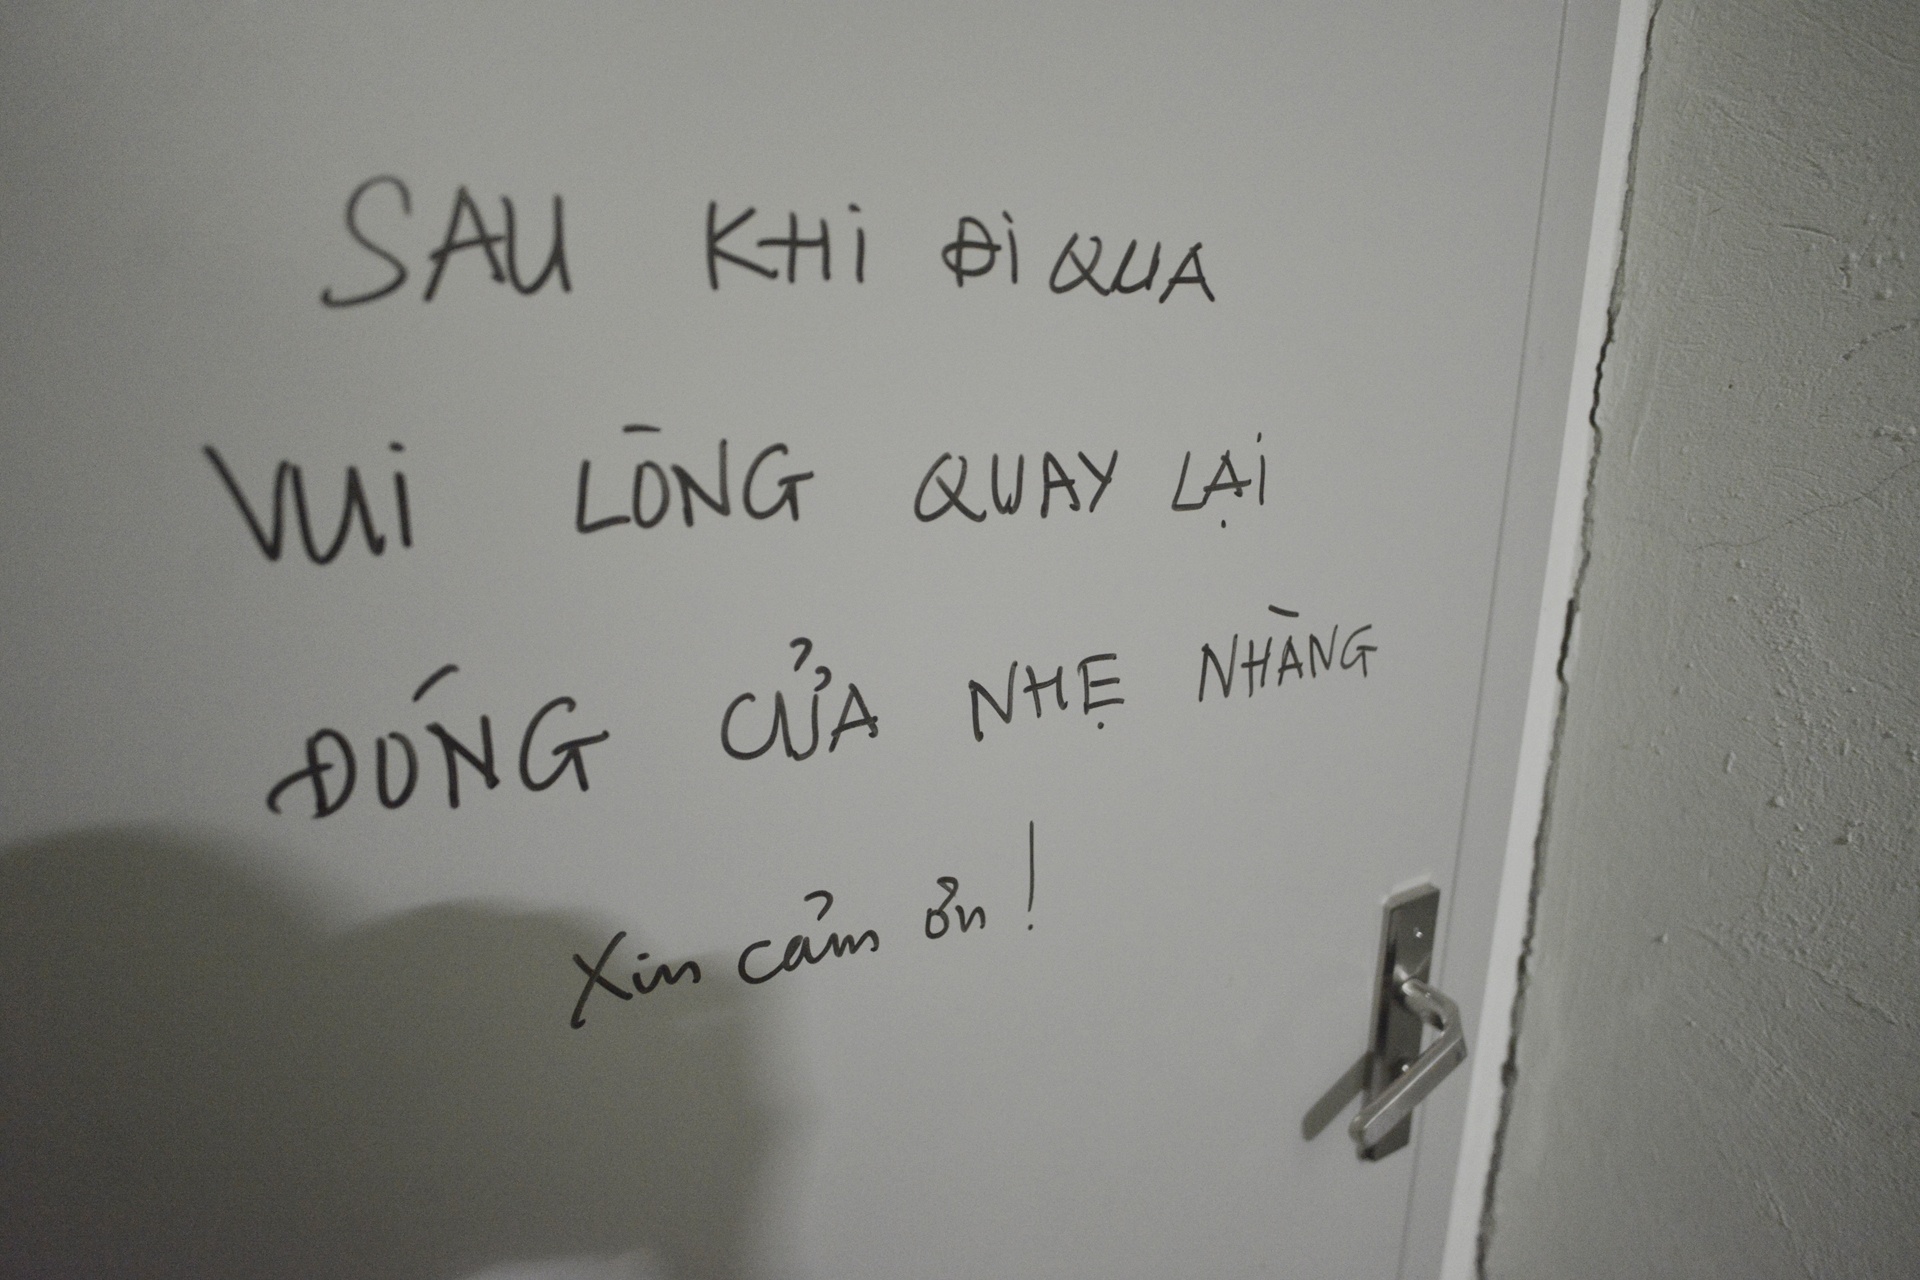 SAU KHI ĐI QUA
VUI LÒNG QUAY LẠI
ĐÓNG CỬA NHẸ NHÀNG
Xin cảm ơn!